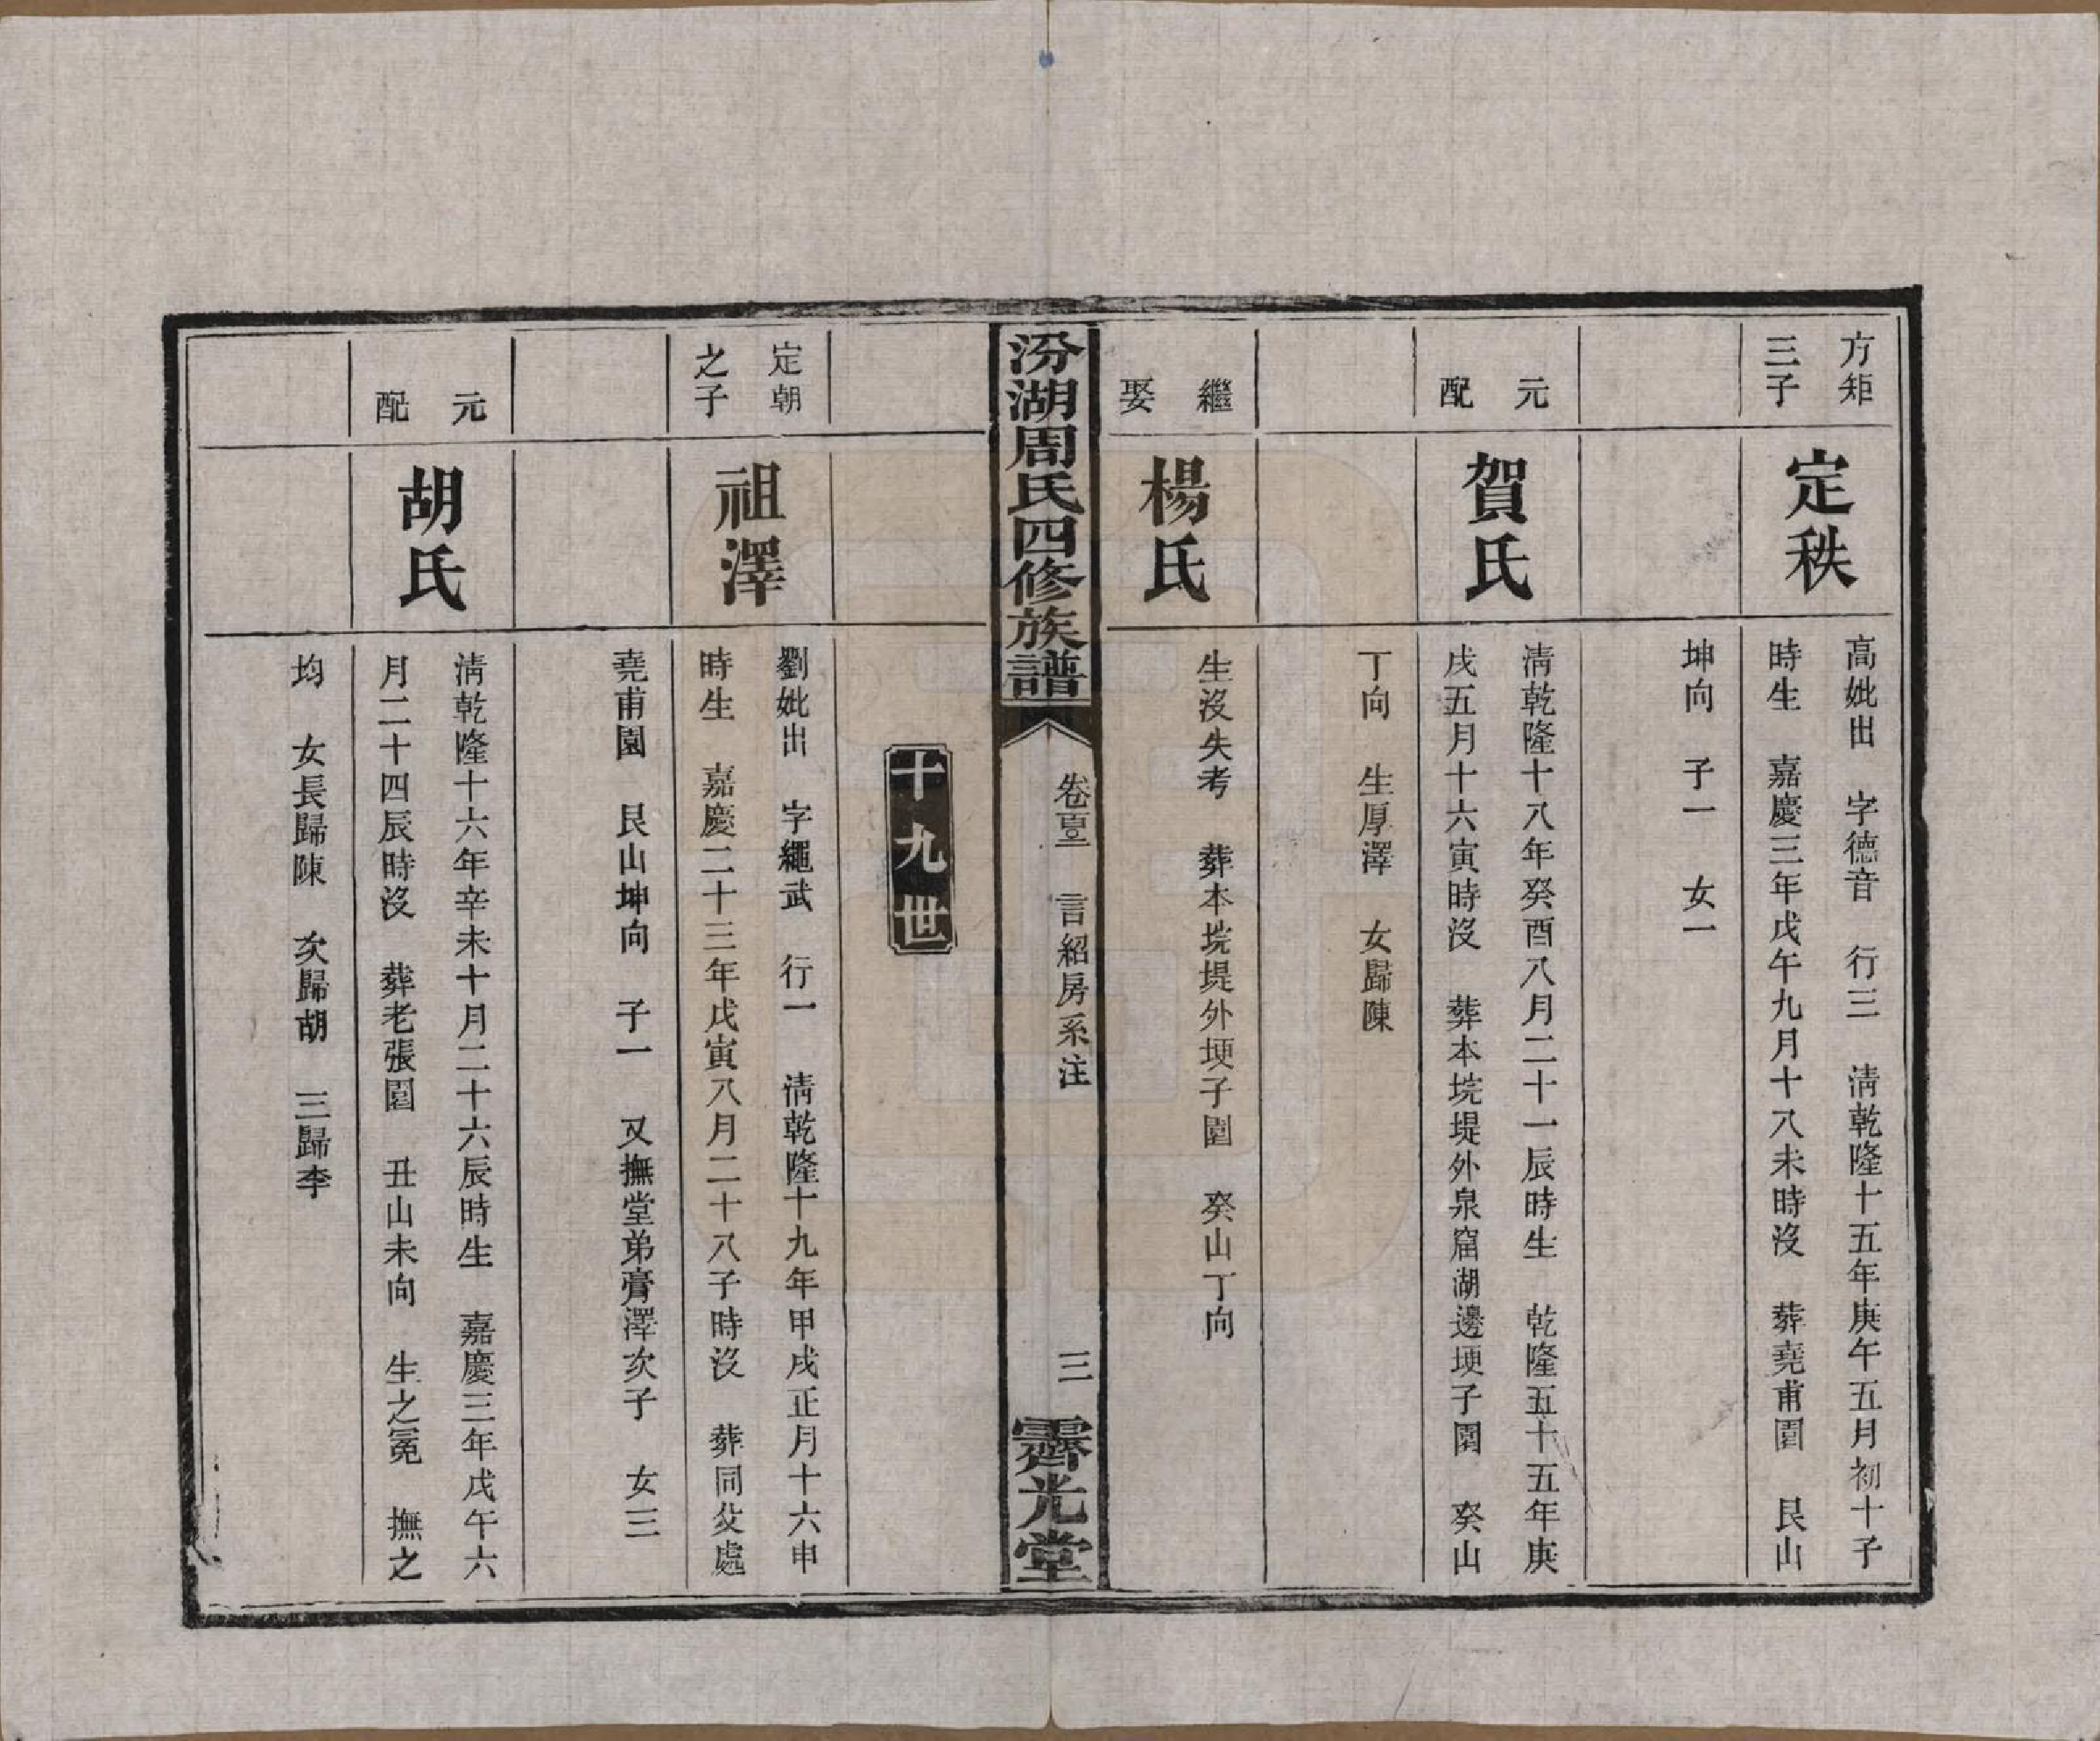 方矩
三子
定秩
高妣出　字德音　行三　淸乾隆十五年庚午五月初十子
時生　嘉慶三年戊午九月十八未時沒　葬堯甫園　艮山
坤向　子一　女一
元
配
賀氏
淸乾隆十八年癸酉八月二十一辰時生　乾隆五十五年庚
戌五月十六寅時沒　葬本垸堤外泉窟湖邊埂子園　癸山
丁向　生厚澤　女歸陳
繼
娶
楊氏
生沒失考　葬本垸堤外埂子園　癸山丁向
汾湖周氏四修族譜
言紹房系注
三
霽光堂
十九世
定朝
之子
祖澤
劉妣出　字繩武　行一　淸乾隆十九年甲戌正月十六申
時生　嘉慶二十三年戊寅八月二十八子時沒　葬同父處
堯甫園　艮山坤向　子一　又撫堂弟膏澤次子　女三
元
配
胡氏
淸乾隆十六年辛未十月二十六辰時生　嘉慶三年戊午六
月二十四辰時沒　葬老張園　丑山未向　生之冕　撫之
均　女長歸陳　次歸胡　三歸李